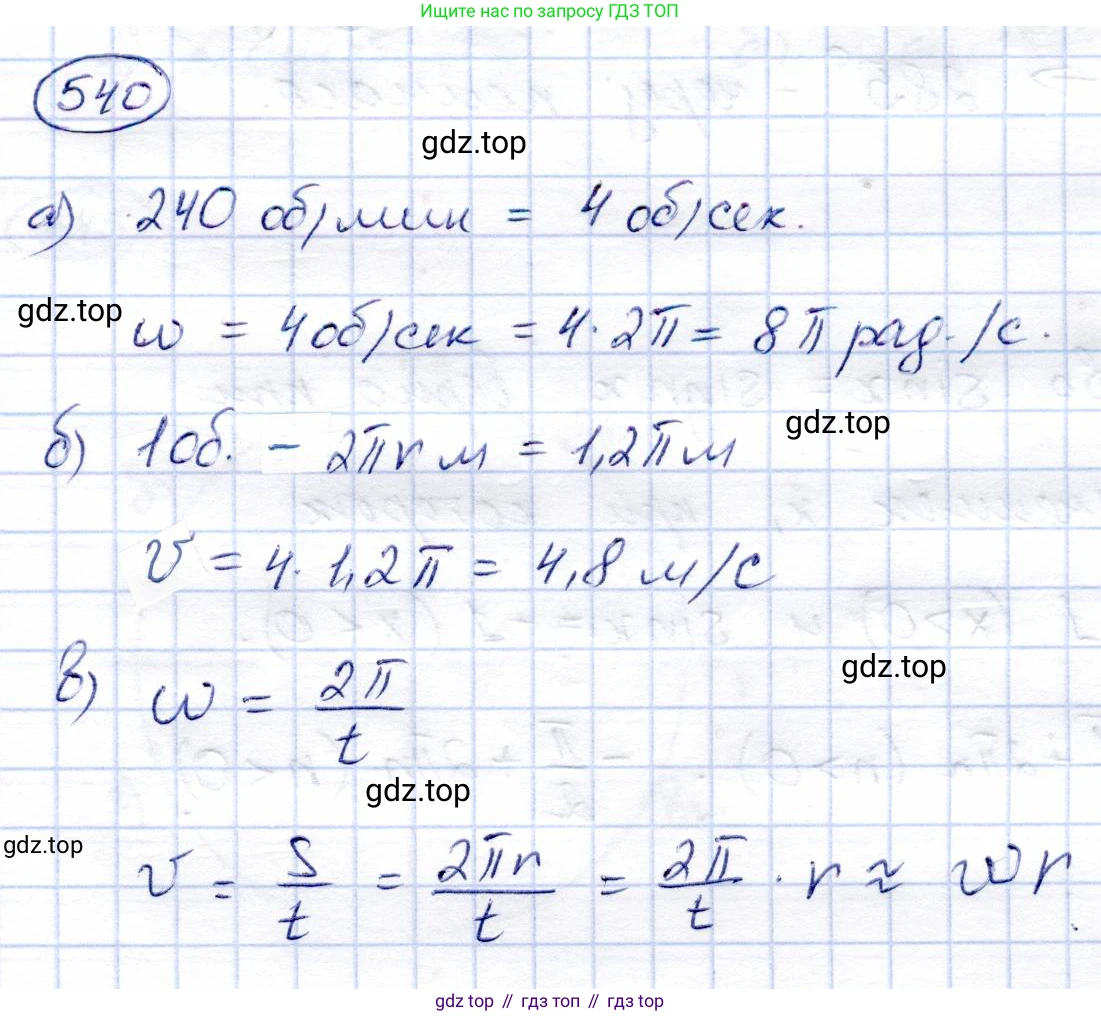 Ищите нас по запросу ГДЗ ТОП
540
gdz.top
а) 240 об/мин = 4 об/сек.
gdz.top
w = 4 об/сек = 4 · 2π = 8π рад./с.
gdz.top
б) 1 об. – 2πr м = 1,2π м
v = 4 · 1,2π = 4,8 м/с
gdz.top
в) w = 2π/t
gdz.top
gdz.top
v = S/t = 2πr/t = 2π/t · r ≈ wr.
gdz top // гдз топ // гдз top